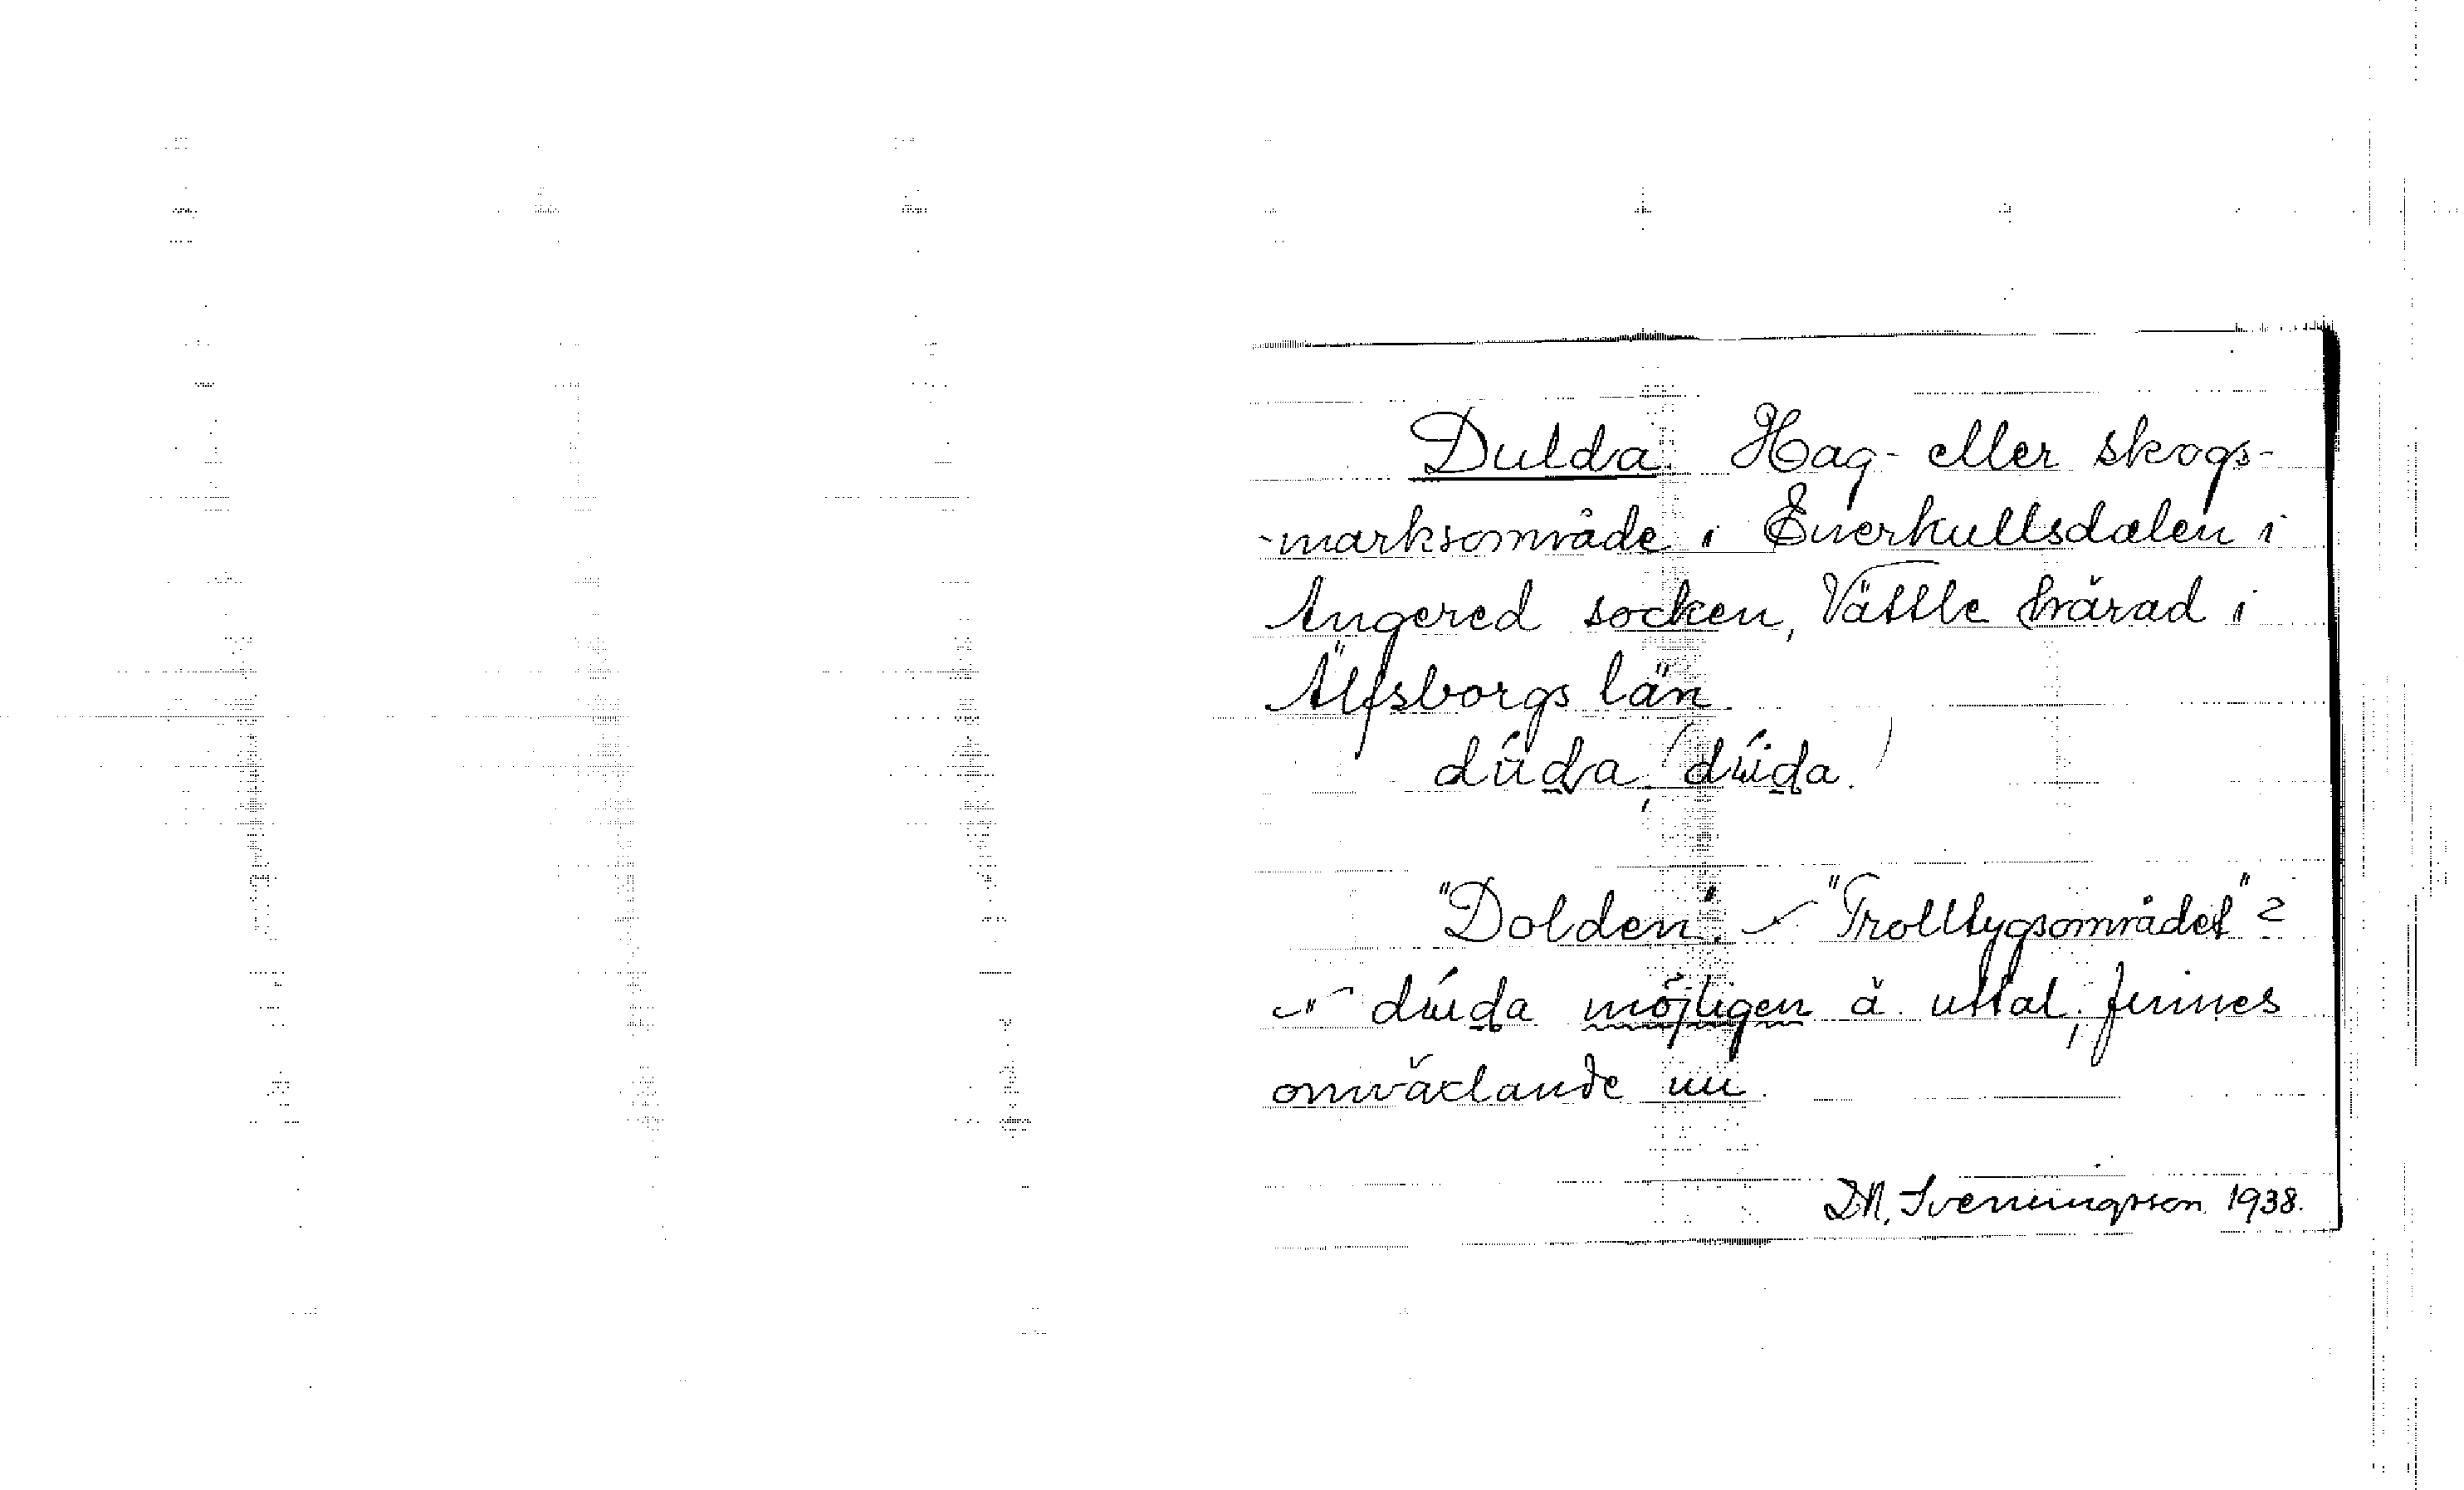 Dulda. Hag- eller skogs-
-marksområde i Enerkullsdalen i
Angered socken, Vättle härad i
Älfsborgs län.
dúda, (dúida.)
"Dolden". "Trolltygsområdet"?
dúida möjligen ä. uttal, finnes
omväxlande nu.
D.N. Svenningsson 1938.